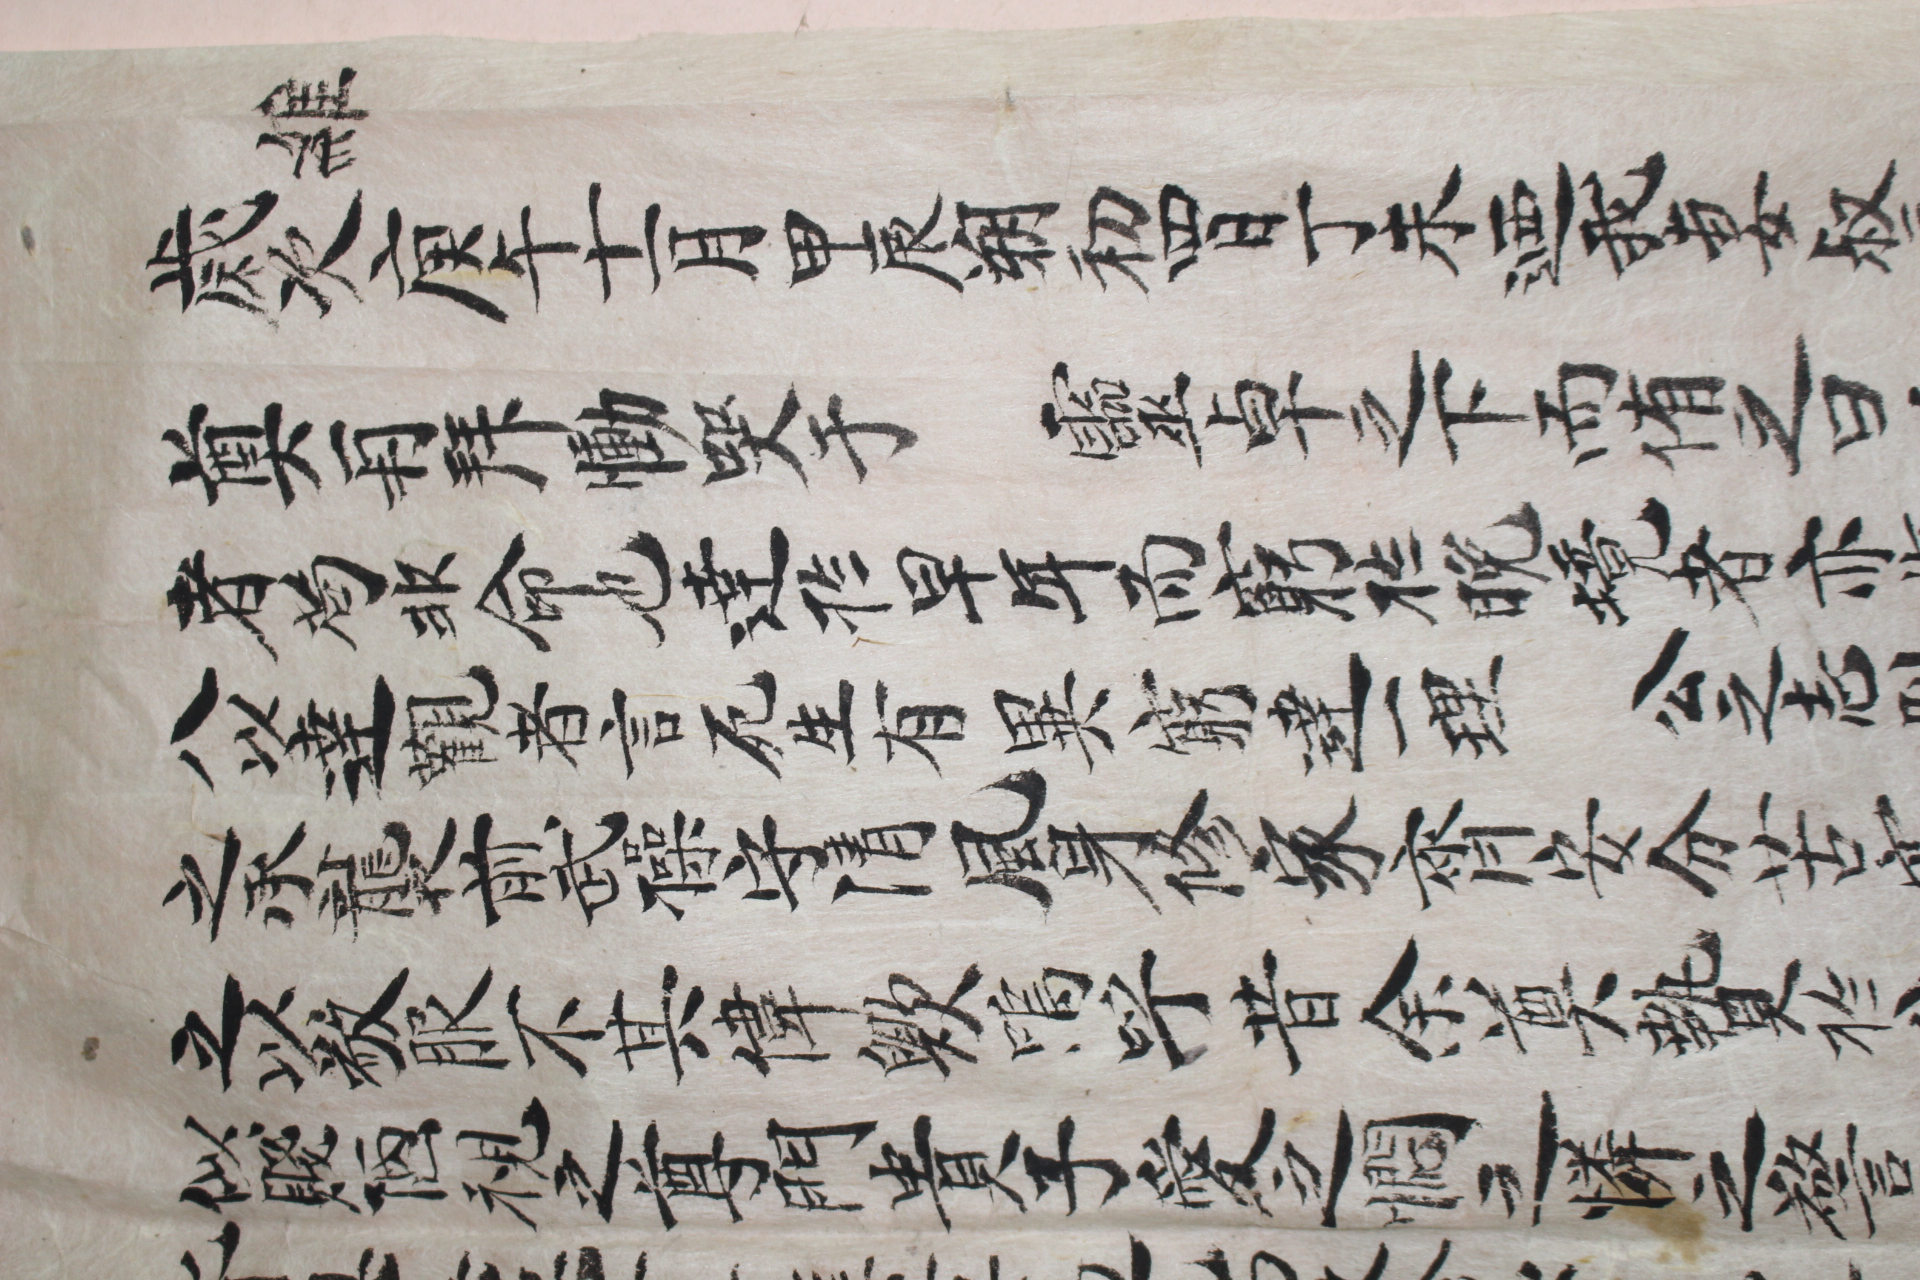 維
歲次庚午十一月甲辰朔初四日丁未迺我妻叔
奠一再拜慟哭于 靈卓之下而侑之曰
者苟非命也達於早年而窮於晚境者亦
八以達觀者言死生有異窮達一理 公之志則
之承襲前武操守淸風身修家齊安分苦
之以敬服不其偉歟嗚呼昔余奠贄於
似賤陋視之尊門貴子愛之憫之憐之警